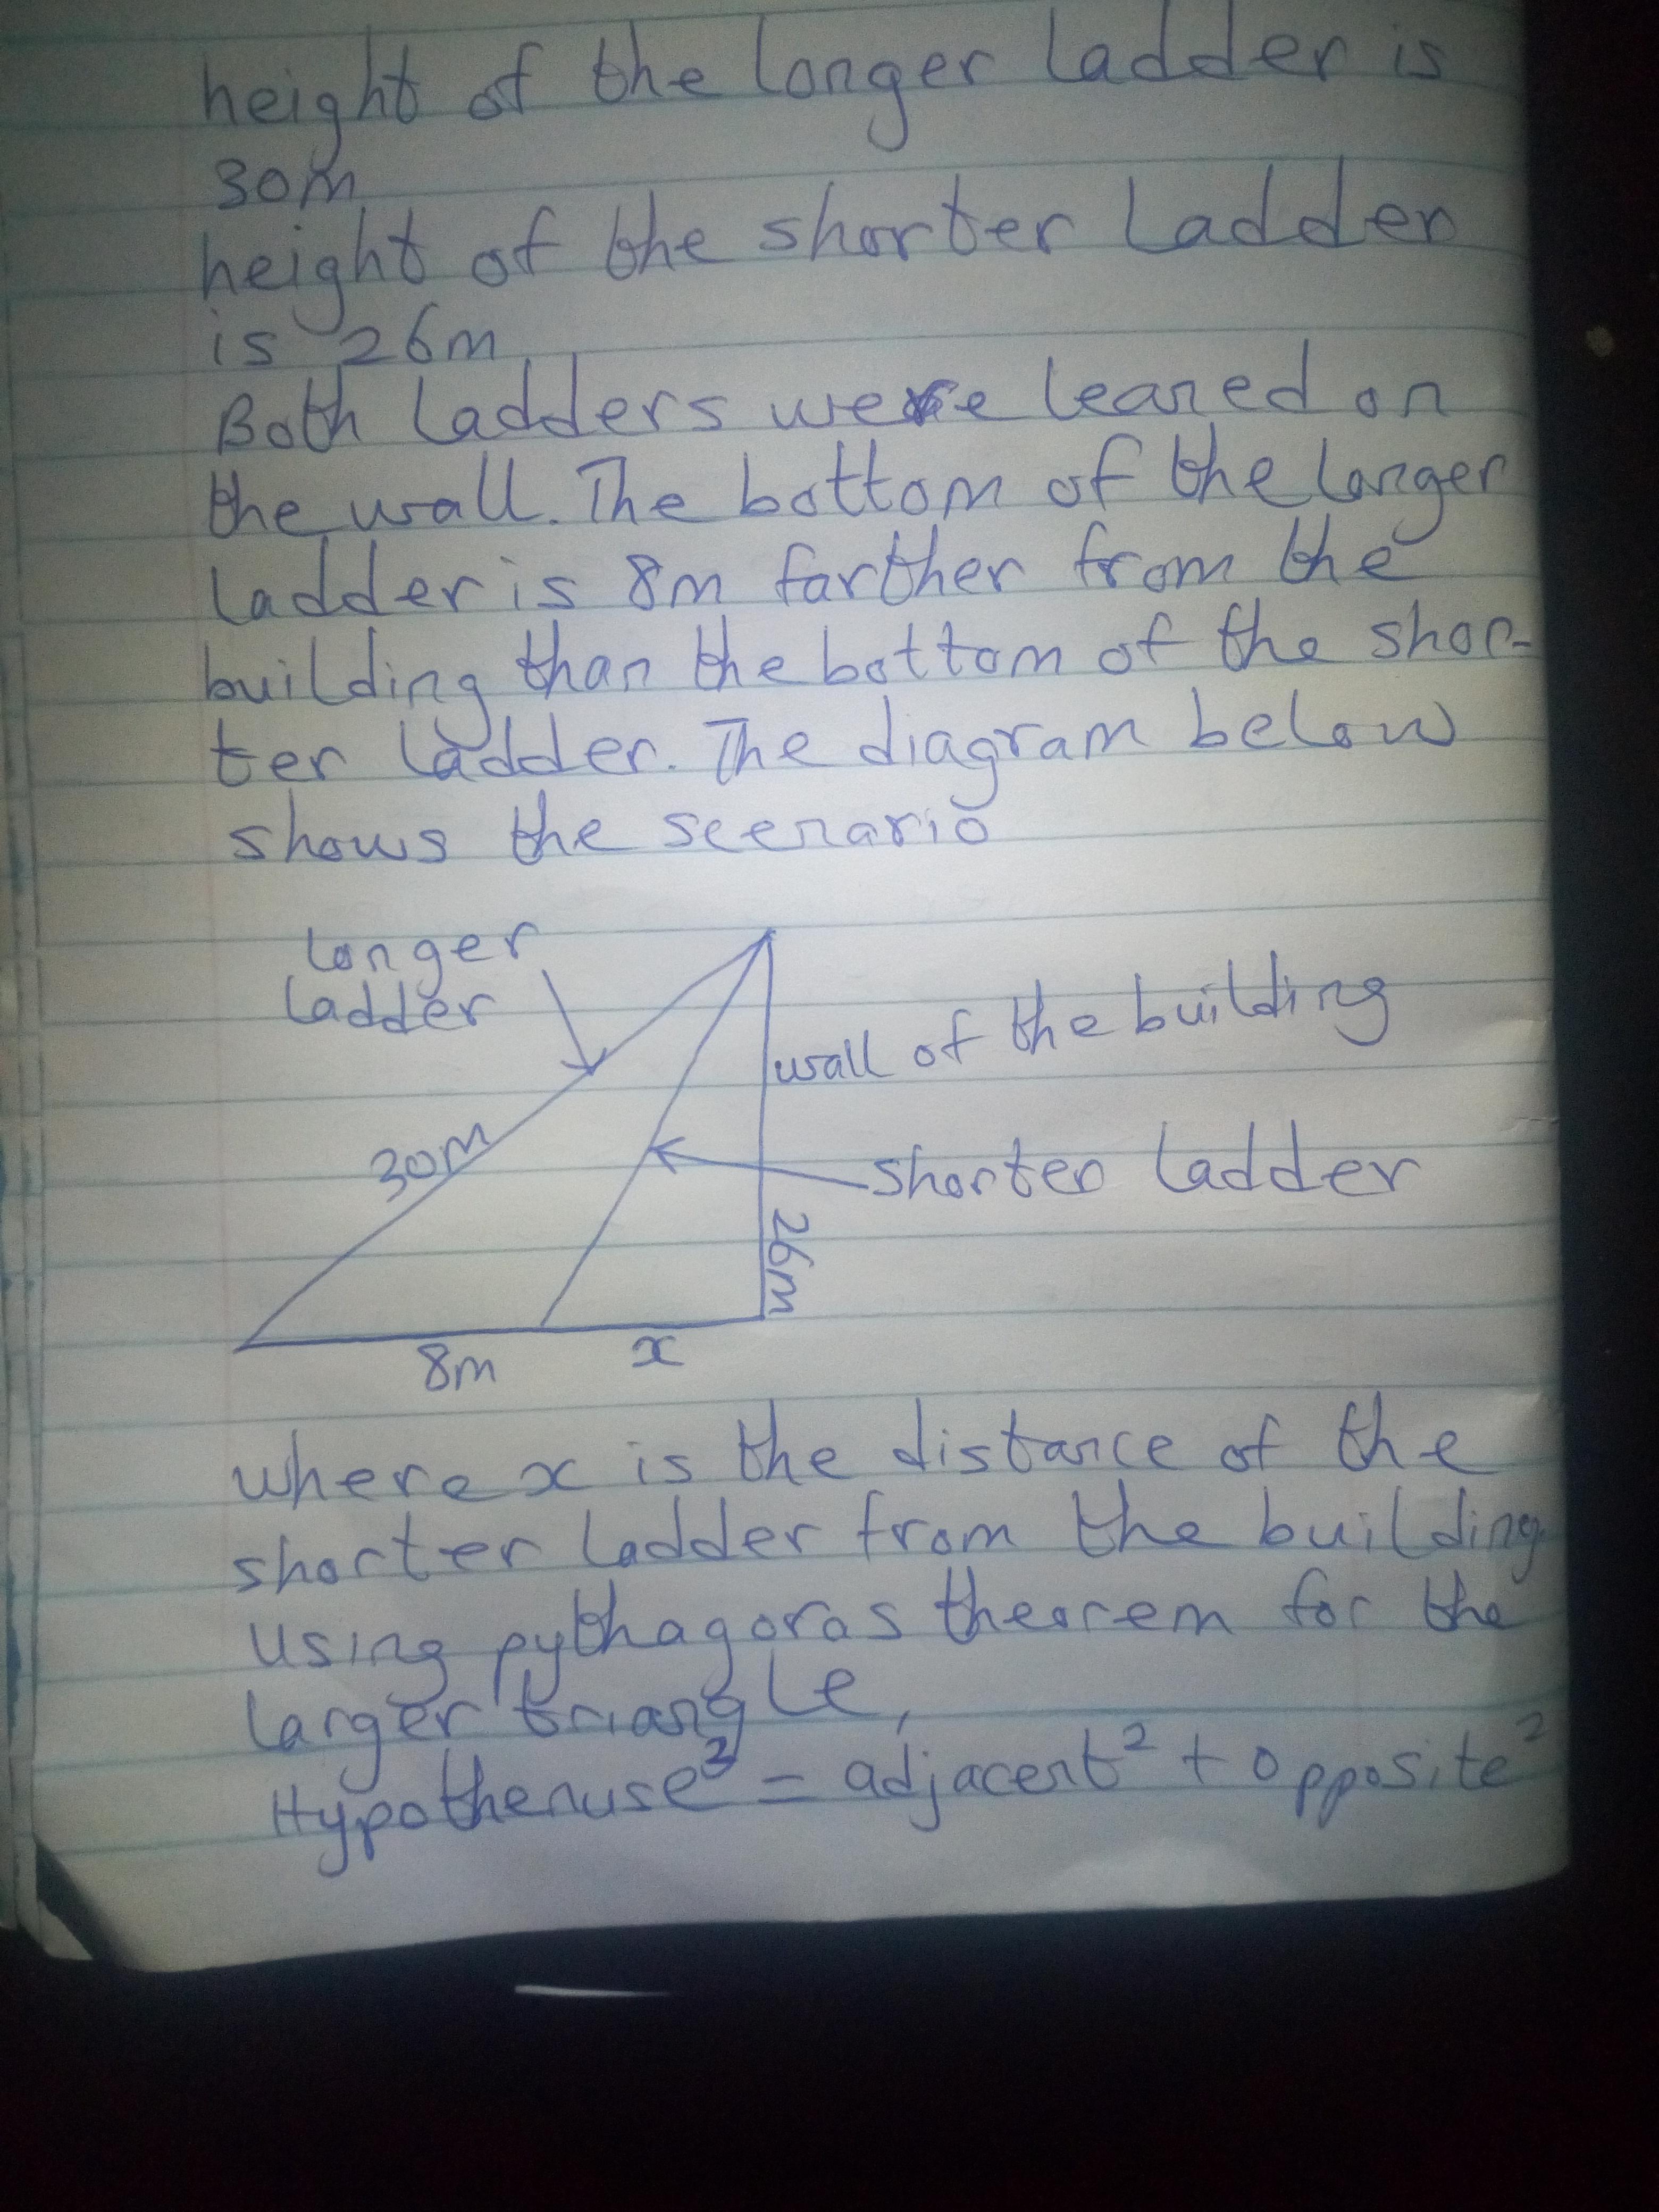 height of the longer ladder is
30m
height of the shorter ladder
is 26m
Both ladders were leaned on
the wall. The bottom of the longer
ladder is 8m farther from the
building than the bottom of the shor-
ter ladder. The diagram below
shows the scenario
longer
ladder
wall of the building
30m
shorter ladder
26m
8m
x
where x is the distance of the
shorter ladder from the building.
Using pythagoras theorem for the
larger triangle,
Hypothenuse² = adjacent² + opposite²